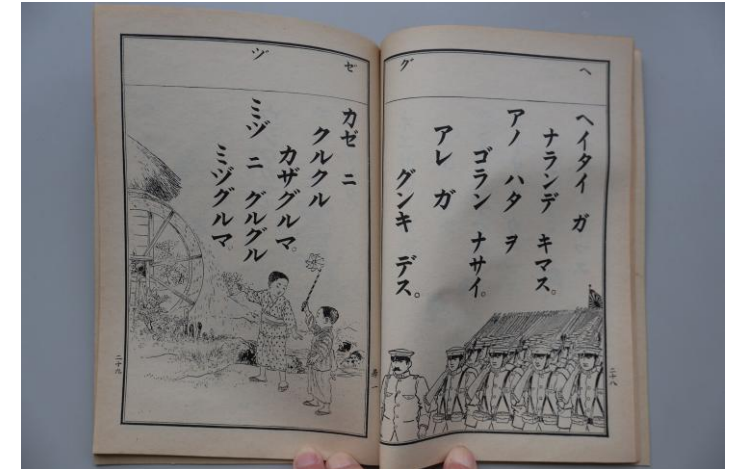 ヘ
グ
ヘイタイ ガ
ナランデ キマス。
アノ ハタ ヲ
ゴラン ナサイ。
アレ ガ
グンキ デス。
二十八
ゼ
ヅ
カゼ ニ
クルクル
カザグルマ。
ミヅ ニ グルグル
ミヅグルマ。
巻一
二十九